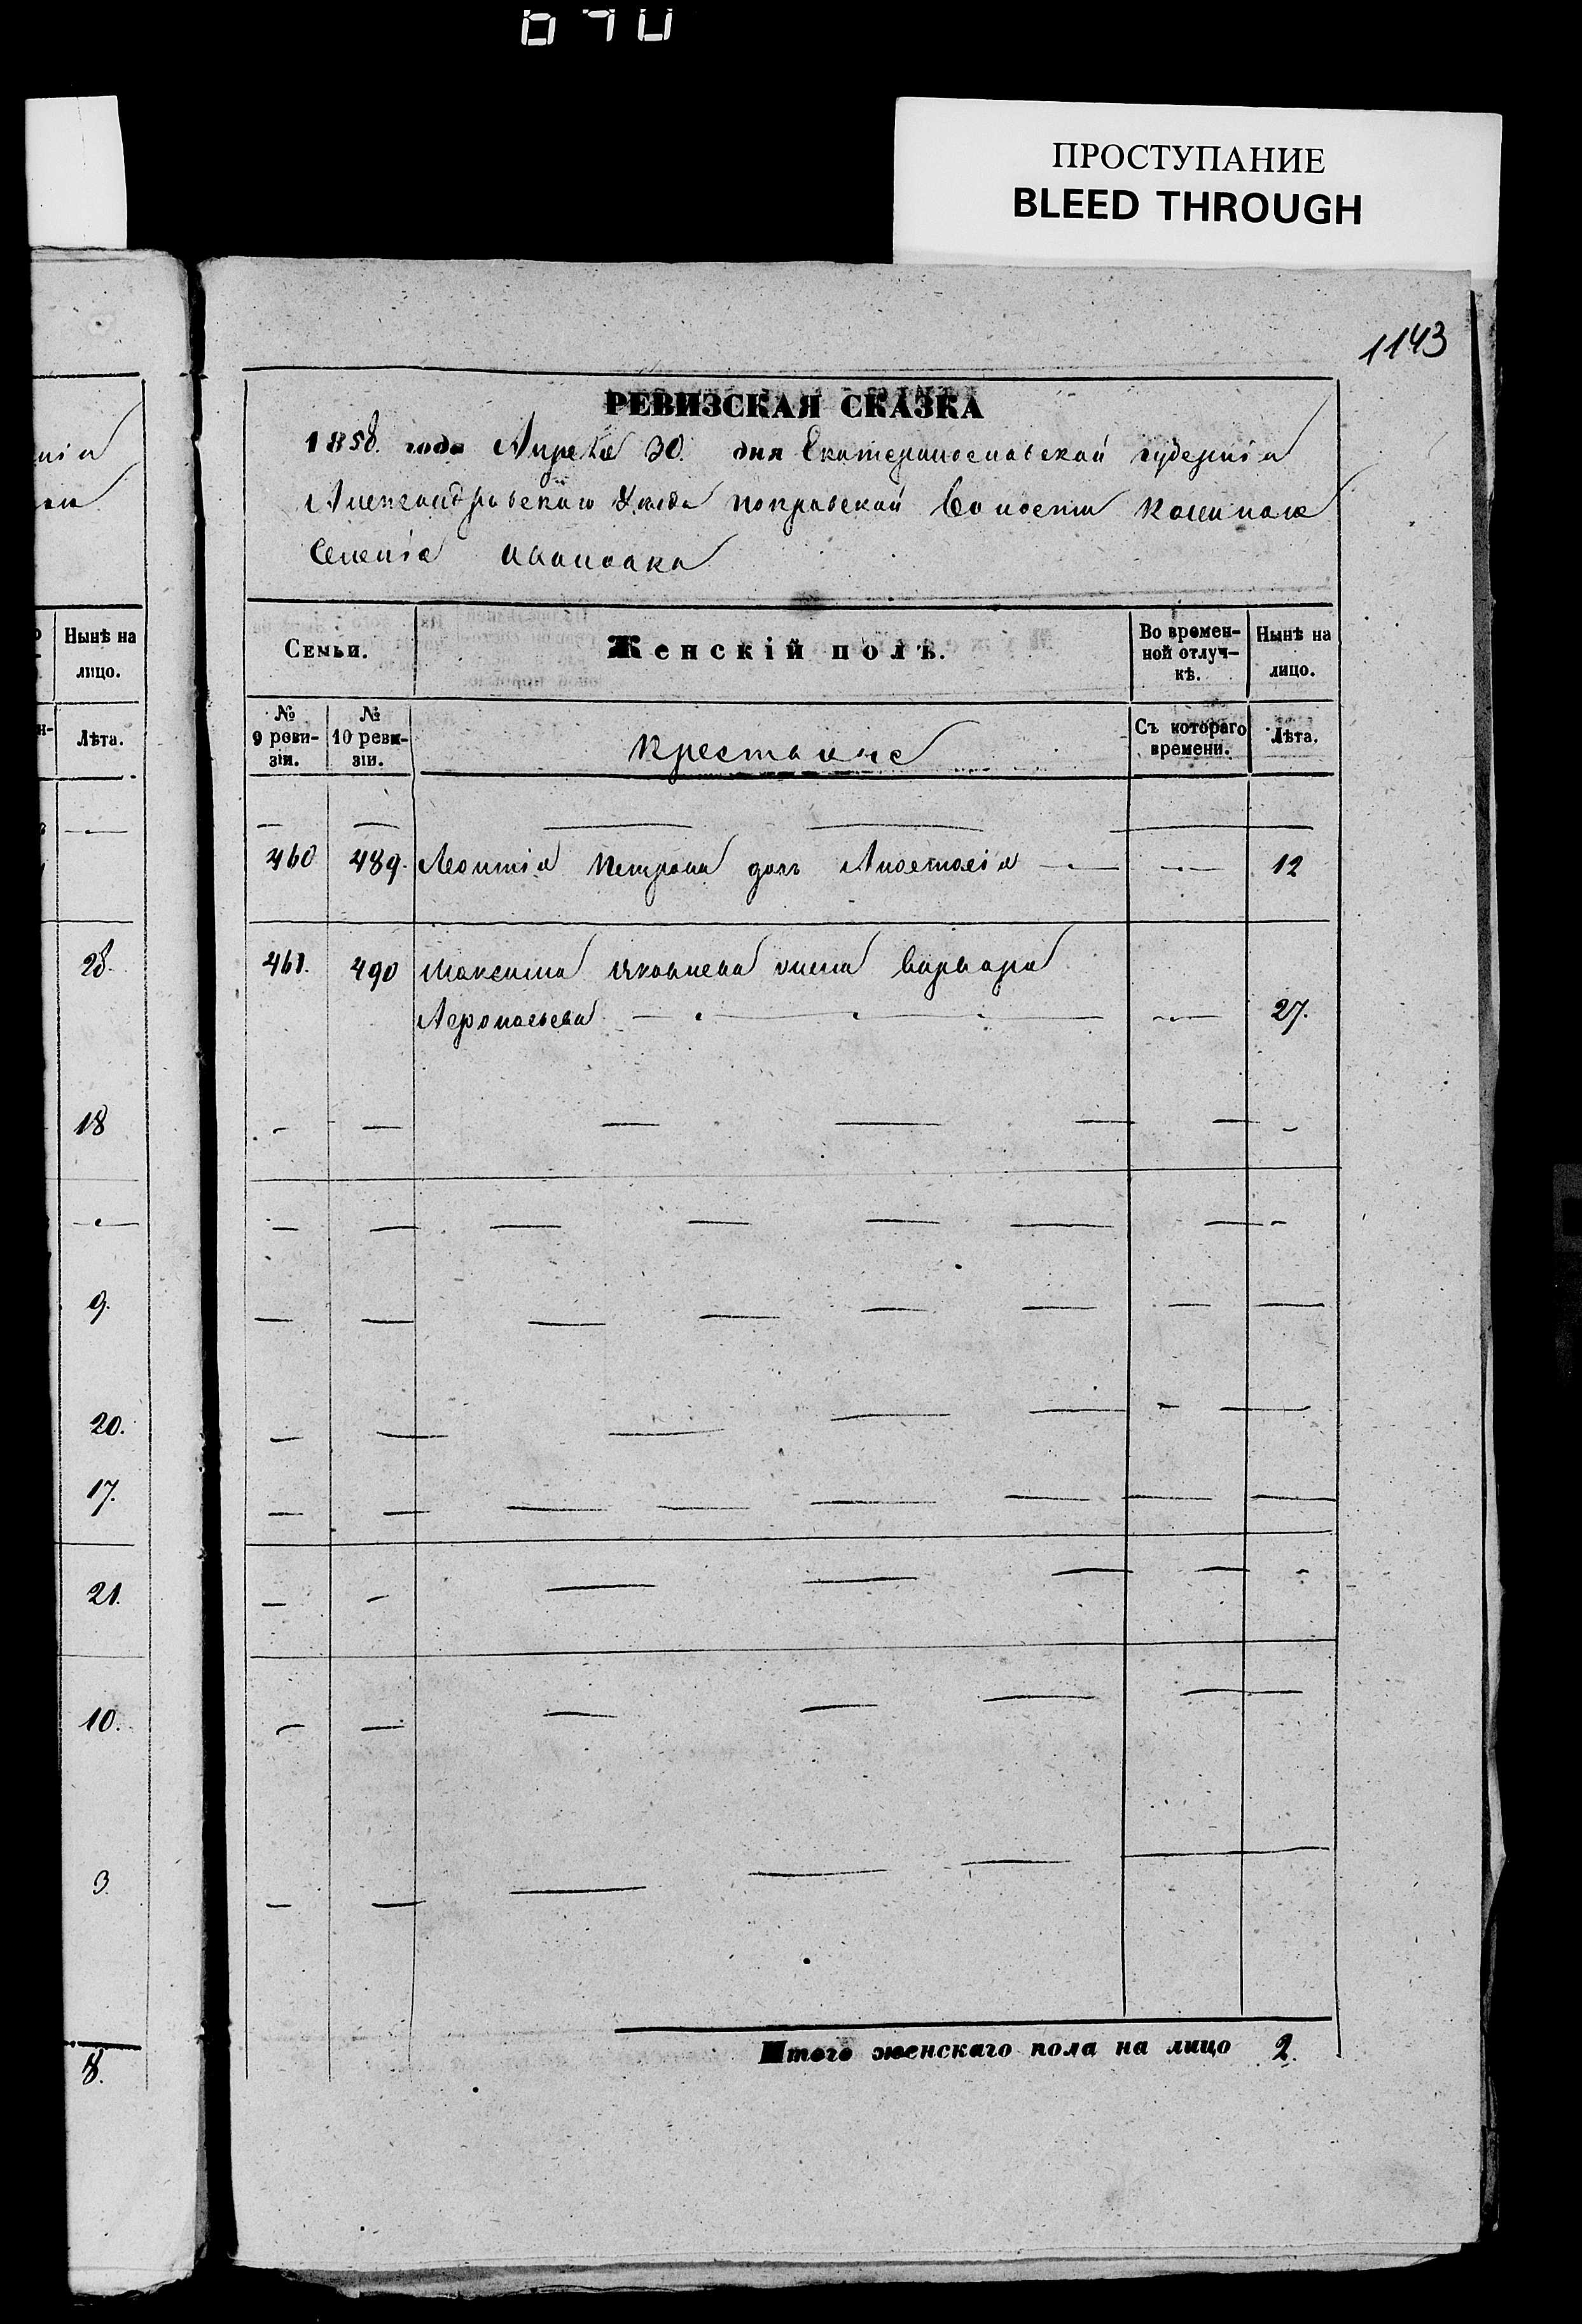 ПРОСТУПАНИЕ
BLEED THROUGH
1143
РЕВИЗСКАЯ СКАЗКА
1858. года Апреля 30. дня Екатеринославской губерніи
Александровскаго Уезда Покровской Волости
Селенія Ивановка
Нынѣ на
лицо.
Лѣта.
28.
18
9.
20.
17.
21.
10.
3.
8.
Семьи.
Женскій полъ.
Во времен-
ной отлуч-
кѣ.
Нынѣ на
лицо.
№
9 реви-
зіи.
№
10 реви-
зіи.
Крестьяне
Съ котораго
времени.
Лѣта.
460 489. Леонтія Петрова дочь Анастасія 12
461. 490 Максима Яковлева жена Варвара
27.
Итого женскаго пола на лицо 2.